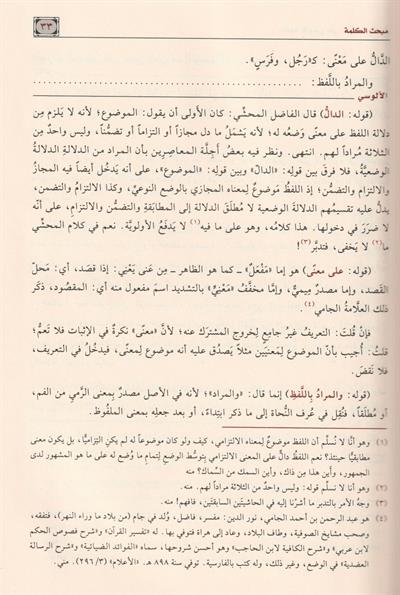 مبحث الكلمة
٣٣
الدَّالُّ على مَعْنًى: كـ«رَجُل، وفَرَسٍ».
والمرادُ باللَّفظ: ........................................
الآلوسي
(قوله: الدالُّ) قال الفاضل المحشّي: كان الأَولى أن يقول: الموضوع؛ لأنه لا يَلزم مِن
دلالة اللفظ على معنًى وَضعُه له؛ لأنه يَشمَلُ ما دل مجازاً أو التزاماً أو تضمُّناً، وليس واحدٌ مِن
الثلاثة مُراداً لهم. انتهى. ونظر فيه بعضُ أجِلَّة المعاصِرين بأن المراد من الدلالةِ الدلالةُ
الوضعيَّةُ، فلا فرق بَينَ قولِه: «الدالّ» وبين قوله: «الموضوع»، على أنه يَدخُل أيضاً فيه المجازُ
والالتزام والتضمُّن؛ إذ اللفظُ مَوضوعٌ لِمعناه المجازي بالوضع النوعيّ، وكذا الالتزامُ والتضمن،
يدلُّ عليه تقسيمُهم الدلالةَ الوضعية لا مُطلَقَ الدلالة إلى المطابَقةِ والتضمُّن والالتزام، على أنّه
لا ضرَرَ في دخولها. هذا كلامُه، وهو على ما فيه(١) لا يَدفَعُ الأولويَّةَ. نعم في كلام المحشّي
ما(٢) لا يَخفى، فتدبَّر(٣)!
(قوله: على معنًى) هو إما «مَفْعَلٌ» ـ كما هو الظاهر ـ مِن عَنى يَعْنِي: إذا قصَد، أي: مَحَلّ
القَصد، وإما مصدرٌ مِيميٌّ، وإمَّا مخفَّفُ «مَعْنِيٍّ» بالتشديد اسم مفعول منه أي: المقصود، ذكَر
ذلك العلَّامةُ الجامي(٤).
فإنْ قُلتَ: التعريفُ غيرُ جامِع لخروج المشترَك عنه؛ لأنَّ «معنًى» نكرةٌ في الإثبات فلا تَعمُّ؛
قلتُ: أُجيب بأنّ الموضوع لِمعنَيَينِ مثلاً يَصدُق عليه أنه موضوع لِمعنًى، فيدخُل في التعريف،
فلا نَقضَ.
(قوله: والمرادُ بِاللَّفظِ) إنما قال: «والمراد»؛ لأنه في الأصل مصدرٌ بمعنى الرَّمي من الفم،
أو مُطلَقاً، فنُقِل في عُرف النُّحاة إلى ما ذكر ابتِداءً، أو بعد جعلِه بمعنى الملفُوظ.
(١) وهو أنَّا لا نُسلِّم أن اللفظ موضوعٌ لِمعناه الالتزامي، كيف ولو كان موضوعاً له لم يكنِ التزاميّاً، بل يكون معنى
مطابقيّاً حينئذ؟ نعم اللفظُ دالٌّ على المعنى الالتزامي بِتوسُّط الوضعِ لِتمامِ ما وُضع له على ما هو المشهور لدى
الجمهور، وأين هذا مِن ذاك، وأين السمك من السِّماك؟ منه
(٢) وهو أنا لا نسلّم قوله: وليس واحدٌ من الثلاثة مراداً لهم. منه.
(٣) وجهُ الأمر بالتدبر ما أشرنا إليه في الحاشيتَين السابقتَين، فافهم! منه.
(٤) هو عبد الرحمن بن أحمد الجامي، نور الدين: مفسر، فاضل، وُلد في جام (من بلاد ما وراء النهر)، فتفقه،
وصحب مشايخ الصوفية، وطاف البلاد، وعاد إلى هراة فتوفي بها. له «تفسير القرآن» و«شرح فصوص الحكم
لابن عربي» و«شرح الكافية لابن الحاجب» وهو أحسن شروحها، سماه «الفوائد الضيائية» و«شرح الرسالة
العضدية» في الوضع، وغير ذلك، وله كتب بالفارسية. توفي سنة ٨٩٨ هـ. «الأعلام» (٣/ ٢٩٦). مني.